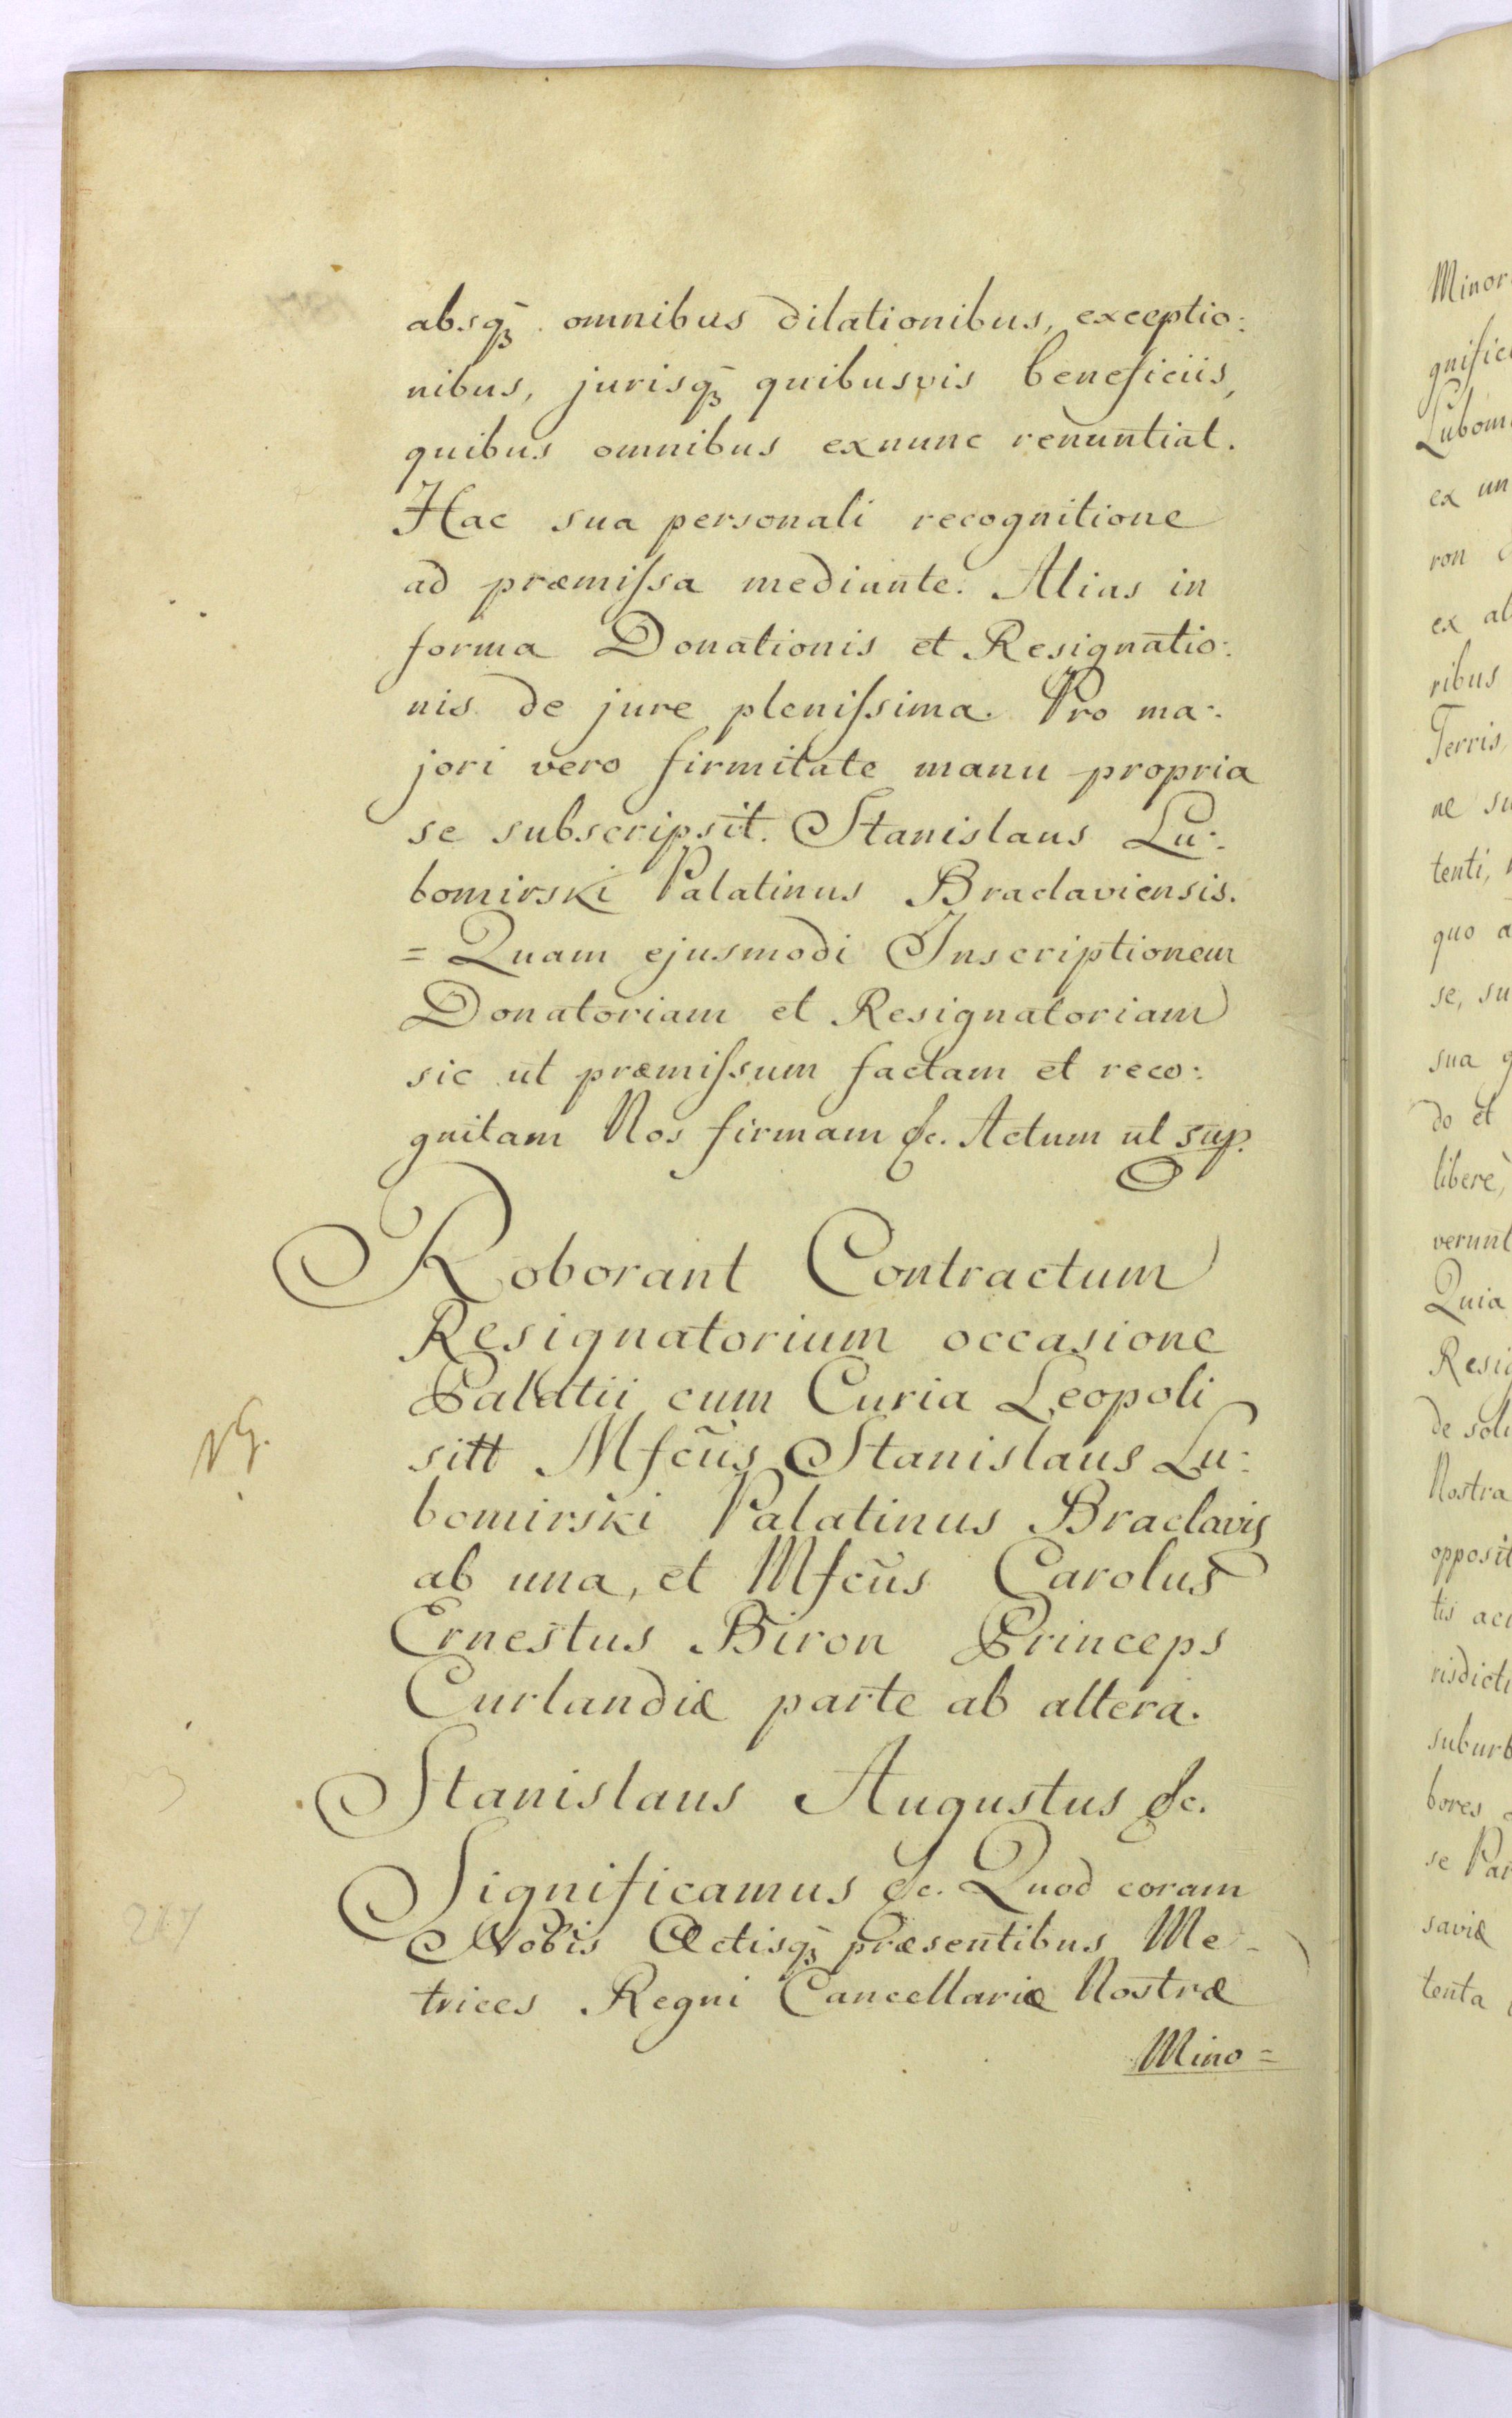 absq̃ omnibus dilationibus, exceptio:
nibus, jurisq̃ quibusvis beneficiis,
quibus omnibus exnunc renuntiat.
Hac sua personali recognitione
ad præmiſsa mediante. Alias in
forma Donationis et Resignatio:
nis de jure pleniſsima. Pro ma:
jori vero firmitate manu propria
se subscripsit. Stanislaus Lu:
bomirski Palatinus Braclaviensis.
= Quam ejusmodi Inscriptionem
Donatoriam et Resignatoriam
sic ut præmiſsum factam et reco:
gnitam Nos firmam &c. Actum ut sup.
Roborant Contractum
Resignatorium occasione
Palatii cum Curia Leopoli
sitt Mfcũs Stanislaus Lu:
bomirski Palatinus Braclavis
ab una, et Mfcũs Carolus
Ernestus Biron Princeps
Curlandiæ parte ab altera.
Stanislaus Augustus &c.
Significamus &c. Quod coram
Nobis Actisq̃ præsentibus Me-
trices Regni Cancellariæ Nostræ
Mino=
Minor
gnific
Lubom
ex un
ron
ex al
ribus
Terris,
ne su
tenti,
quo a
se, su
sua q
do et
libere,
verunt
Quia
Resig
de soli
Nostra
opposit
tis acc
risdicti
suburb
bores
se Par
saviæ
tenta